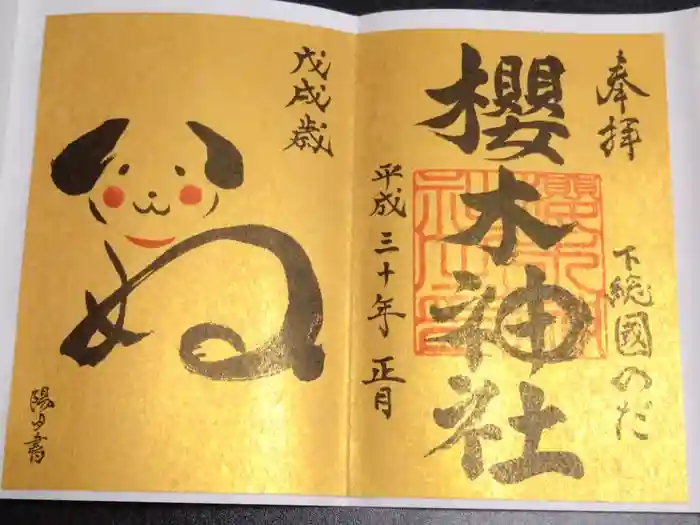 奉拝
下総國のだ
櫻木神社
平成三十年正月
戊戌歳
ぬ
陽夕書